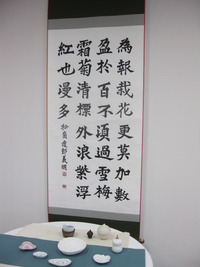 為報栽花更莫加數
盈於百不須過雪梅
霜菊清標外浪蘂浮
紅也漫多